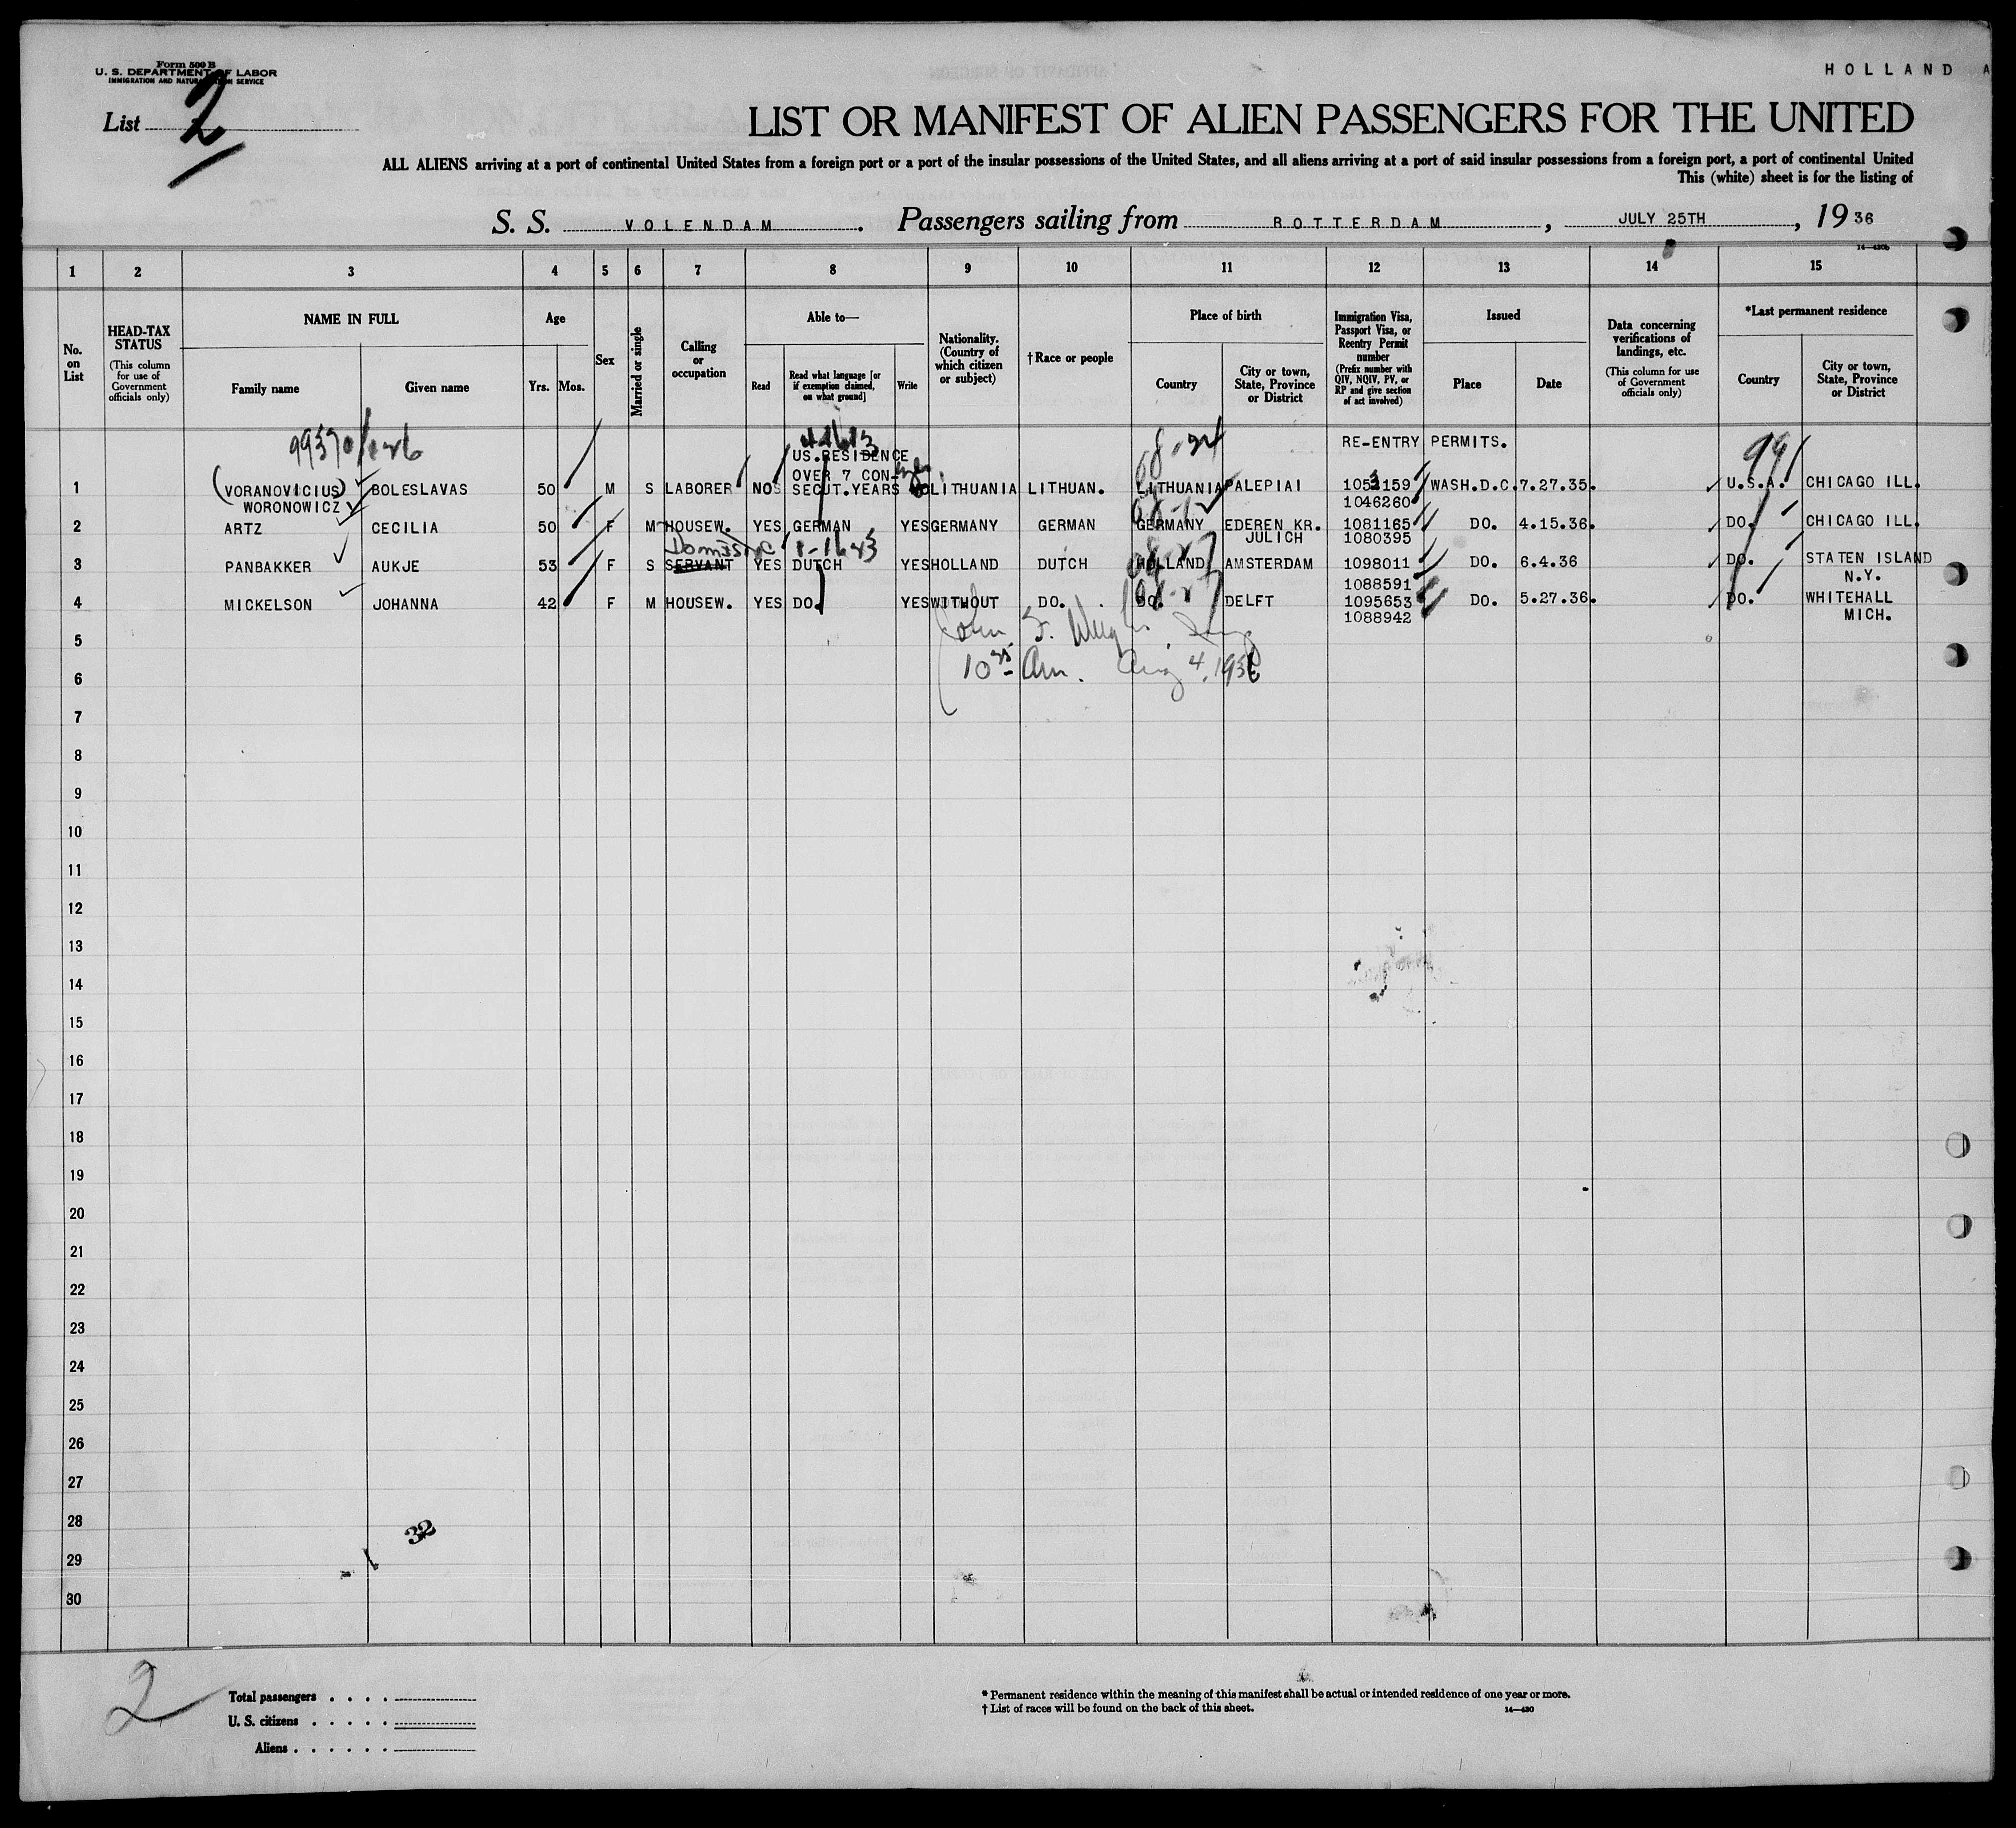 Form 500 B
U. S. DEPARTMENT OF LABOR
IMMIGRATION AND NATURALIZATION SERVICE
HOLLAND A
List 2
LIST OR MANIFEST OF ALIEN PASSENGERS FOR THE UNITED
ALL ALIENS arriving at a port of continental United States from a foreign port or a port of the insular possessions of the United States, and all aliens arriving at a port of said insular possessions from a foreign port, a port of continental United
This (white) sheet is for the listing of
S. S. VOLENDAM. Passengers sailing from ROTTERDAM, JULY 25TH, 1936
14—430b
1 2 3 4 5 6 7 8 9 10 11 12 13 14 15
No. on List
HEAD-TAX STATUS
(This column for use of Government officials only)
NAME IN FULL
Family name Given name
Age
Yrs. Mos.
Sex
Married or single
Calling or occupation
Able to—
Read
Read what language [or if exemption claimed, on what ground]
Write
Nationality. (Country of which citizen or subject)
†Race or people
Place of birth
Country
City or town, State, Province or District
Immigration Visa, Passport Visa, or Reentry Permit number
(Prefix number with QIV, NQIV, PV, or RP and give section of act involved)
Issued
Place Date
Data concerning verifications of landings, etc.
(This column for use of Government officials only)
*Last permanent residence
Country
City or town, State, Province or District
RE-ENTRY PERMITS.
99
US.RESIDENCE
OVER 7 CON-
1 (VORANOVICIUS) BOLESLAVAS 50 M S LABORER NO SECUT.YEARS NO LITHUANIA LITHUAN. LITHUANIA PALEPIAI 1053159 WASH.D.C. 7.27.35. U.S.A. CHICAGO ILL.
WORONOWICZ 1046260
2 ARTZ CECILIA 50 F M HOUSEW. YES GERMAN YES GERMANY GERMAN GERMANY EDEREN KR. 1081165 DO. 4.15.36. DO. CHICAGO ILL.
JULICH 1080395
Domestic
3 PANBAKKER AUKJE 53 F S SERVANT YES DUTCH YES HOLLAND DUTCH HOLLAND AMSTERDAM 1098011 DO. 6.4.36 DO. STATEN ISLAND
1088591 N.Y.
4 MICKELSON JOHANNA 42 F M HOUSEW. YES DO. YES WITHOUT DO. DO. DELFT 1095653 DO. 5.27.36. DO. WHITEHALL
1088942 MICH.
John
10 Am. Aug 4, 1936
5
6
7
8
9
10
11
12
13
14
15
16
17
18
19
20
21
22
23
24
25
26
27
28
29
30
32
2
Total passengers . . . .
U. S. citizens . . . . .
Aliens . . . . . .
* Permanent residence within the meaning of this manifest shall be actual or intended residence of one year or more.
† List of races will be found on the back of this sheet.
14—430